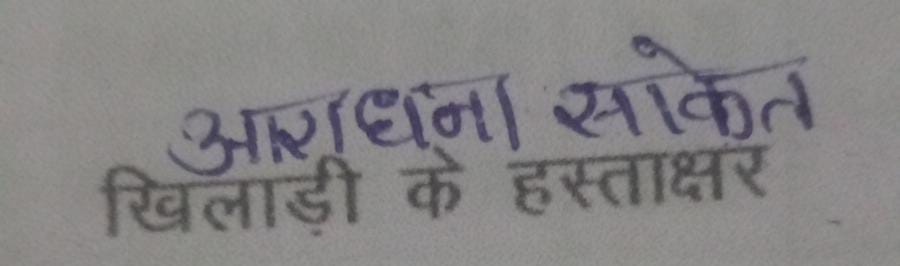 आराधना साकेत
खिलाड़ी के हस्ताक्षर